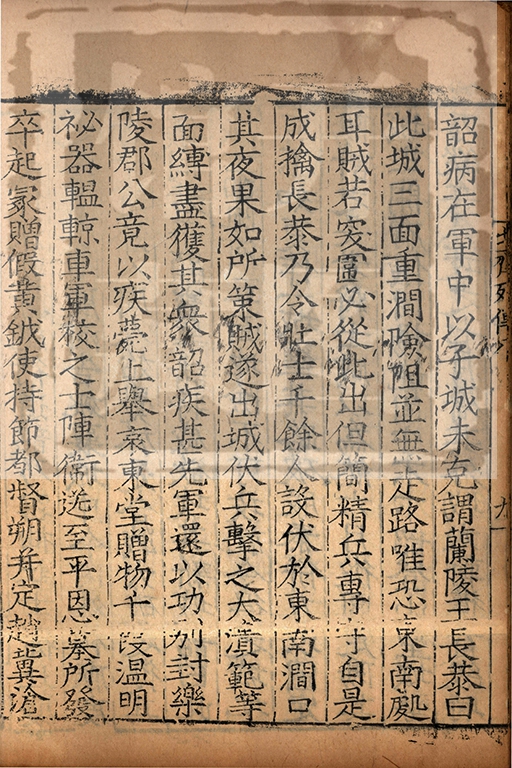 韶病在軍中以子城未克謂蘭陵王長恭曰
此城三面重澗險阻並無走路唯恐東南處
耳賊若突圍必從此出但簡精兵專守自是
成擒長恭乃令壯士千餘人設伏於東南澗口
其夜果如所策賊遂出城伏兵擊之大潰範等
面縛盡獲其衆韶疾甚先軍還以功別封樂
陵郡公竟以疾薨上舉哀東堂贈物千段温明
祕器轀輬車軍校之士陣衛送至平恩墓所發
卒起冢贈假黄鉞使持節都督朔并定趙冀滄